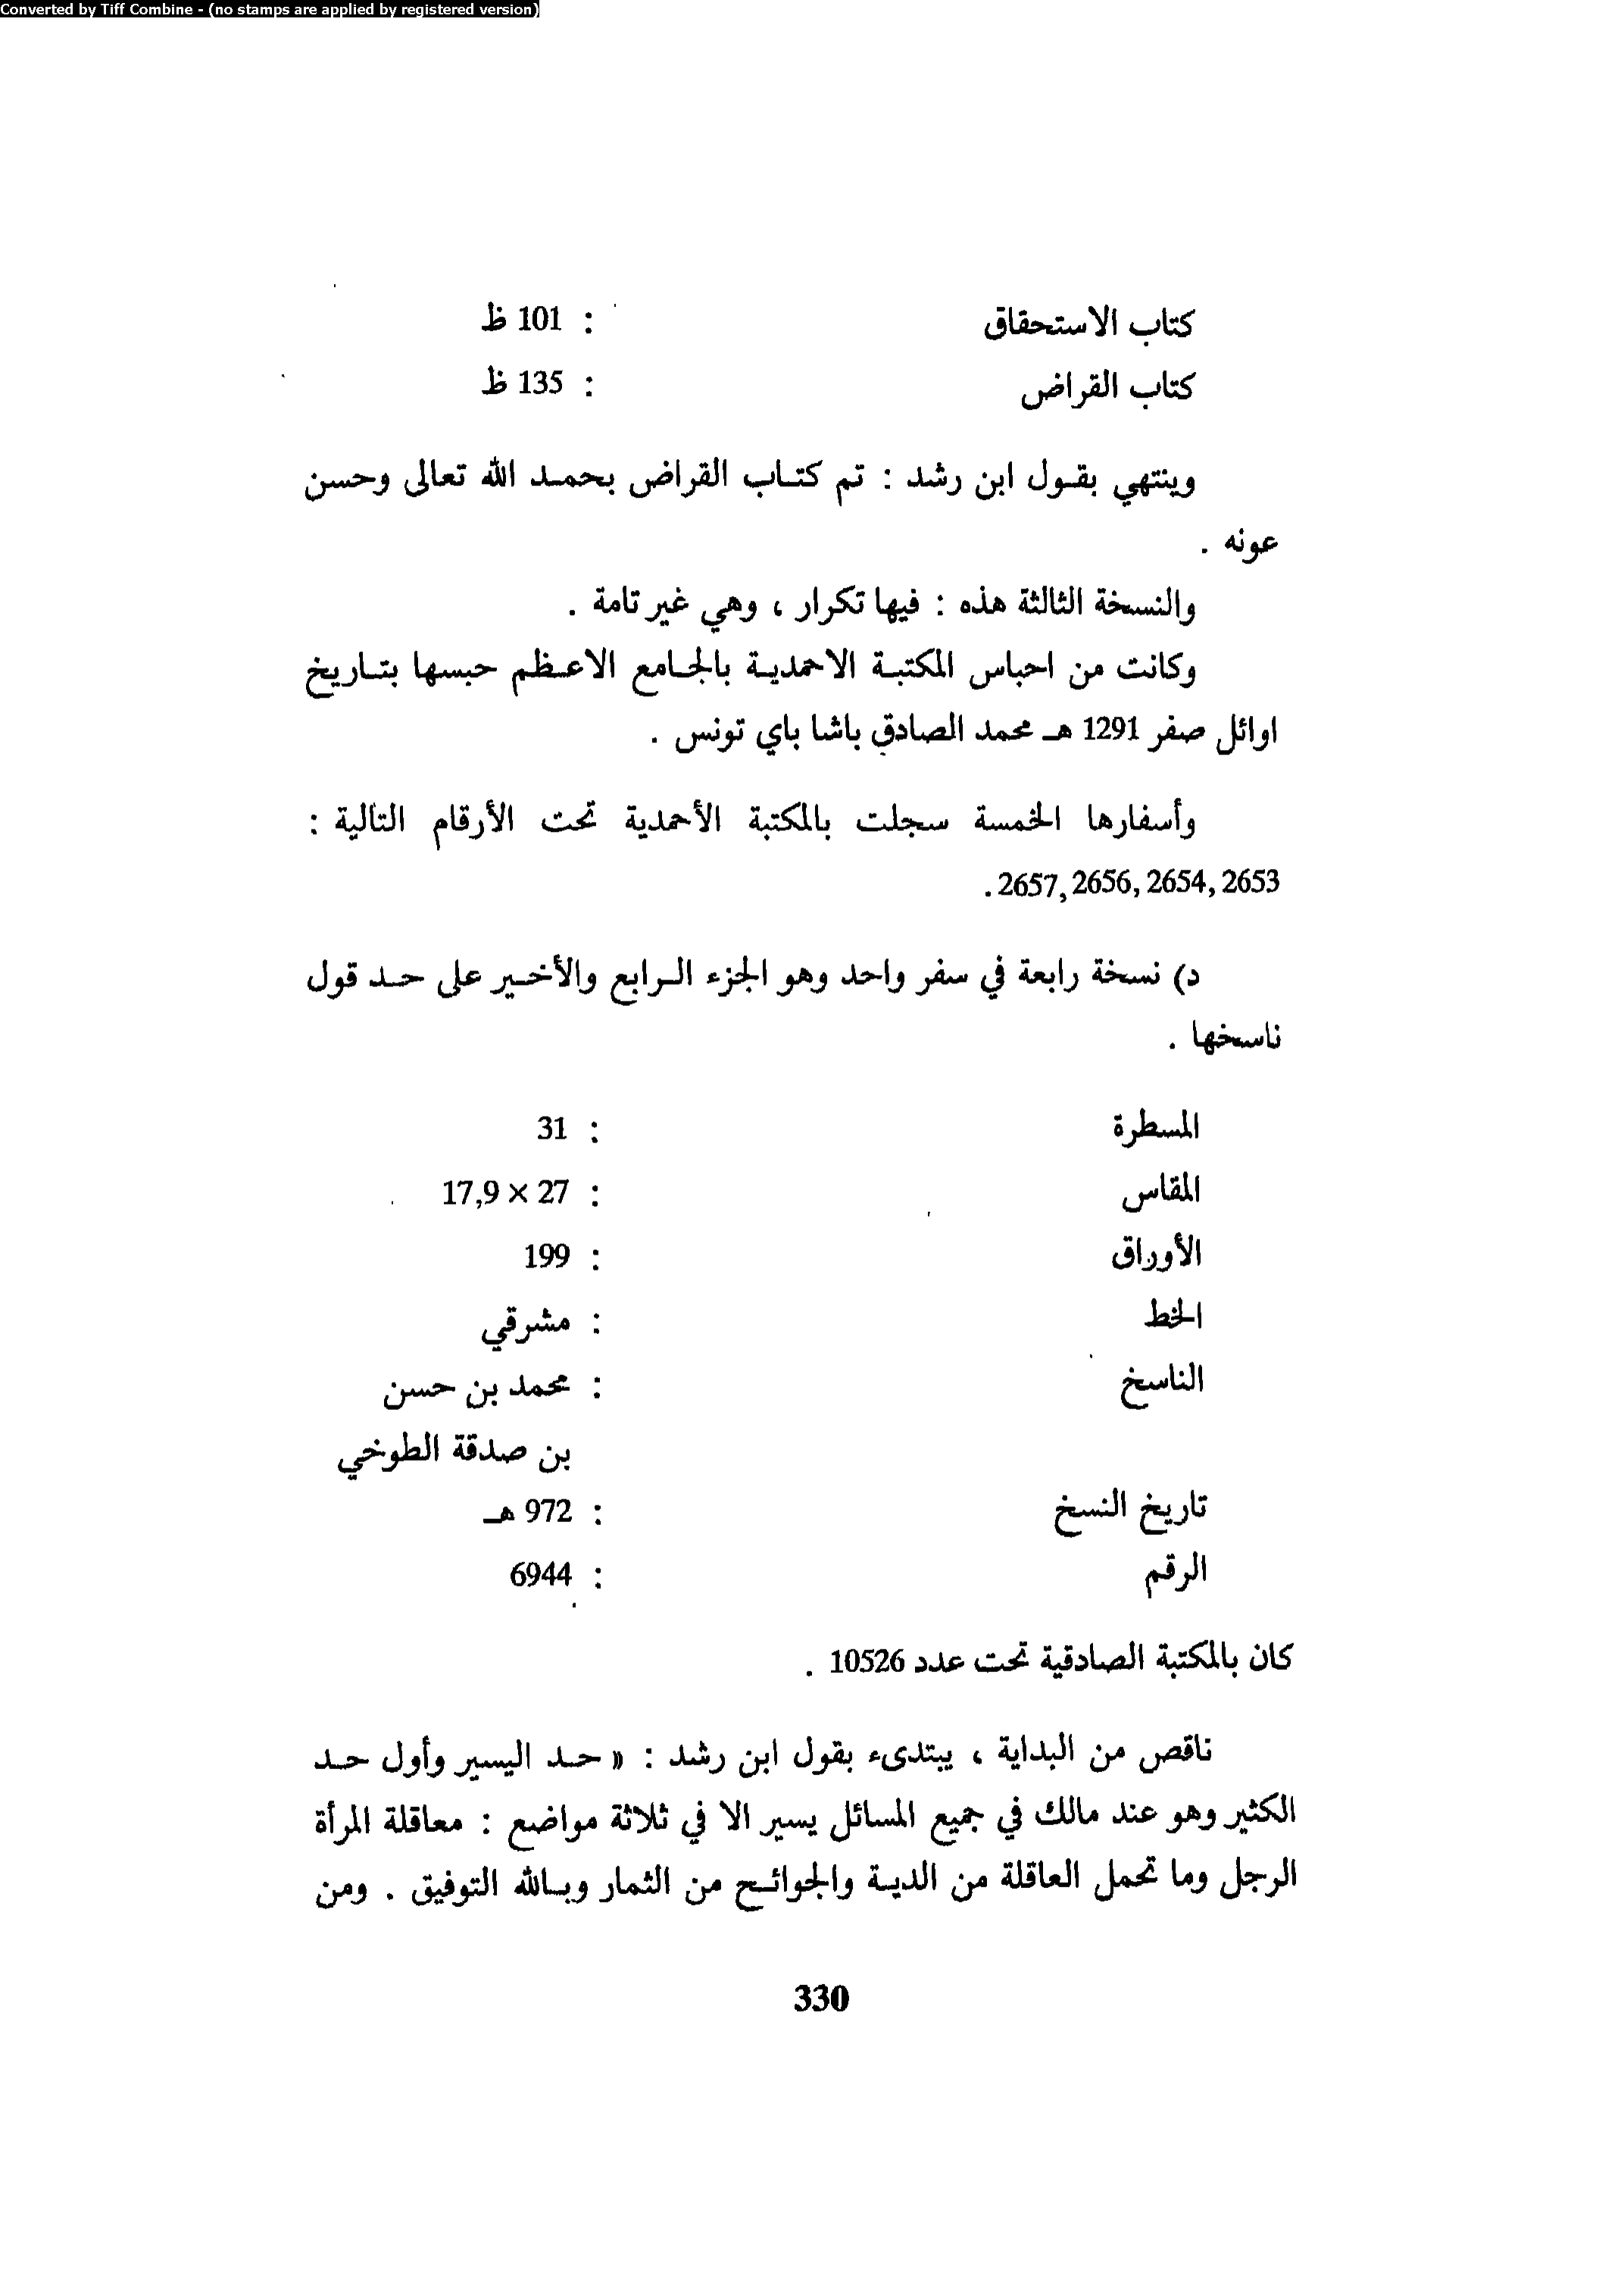 Converted by Tiff Combine - (no stamps are applied by registered version)
كتاب الاستحقاق : 101 ظ
كتاب القراض : 135 ظ
وينتهي بقول ابن رشد : تم كتاب القراض بحمد الله تعالى وحسن
عونه .
والنسخة الثالثة هذه : فيها تكرار ، وهي غير تامة .
وكانت من احباس المكتبة الاحمدية بالجامع الاعظم حبسها بتاريخ
اوائل صفر 1291 هـ محمد الصادق باشا باي تونس .
وأسفارها الخمسة سجلت بالمكتبة الأحمدية تحت الأرقام التالية :
2653 ,2654 ,2656 ,2657 .
د) نسخة رابعة في سفر واحد وهو الجزء الرابع والأخير على حد قول
ناسخها .
المسطرة : 31
المقاس : 27 × 17,9
الأوراق : 199
الخط : مشرقي
الناسخ : محمد بن حسن
بن صدقة الطوخي
تاريخ النسخ : 972 هـ
الرقم : 6944
كان بالمكتبة الصادقية تحت عدد 10526 .
ناقص من البداية ، يبتدىء بقول ابن رشد : « حد اليسير وأول حد
الكثير وهو عند مالك في جميع المسائل يسير الا في ثلاثة مواضع : معاقلة المرأة
الرجل وما تحمل العاقلة من الدية والجوائح من الثمار وبالله التوفيق . ومن
330